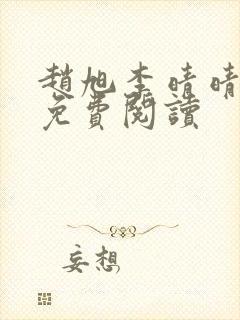 趙旭李晴晴
免費閱讀
妄想